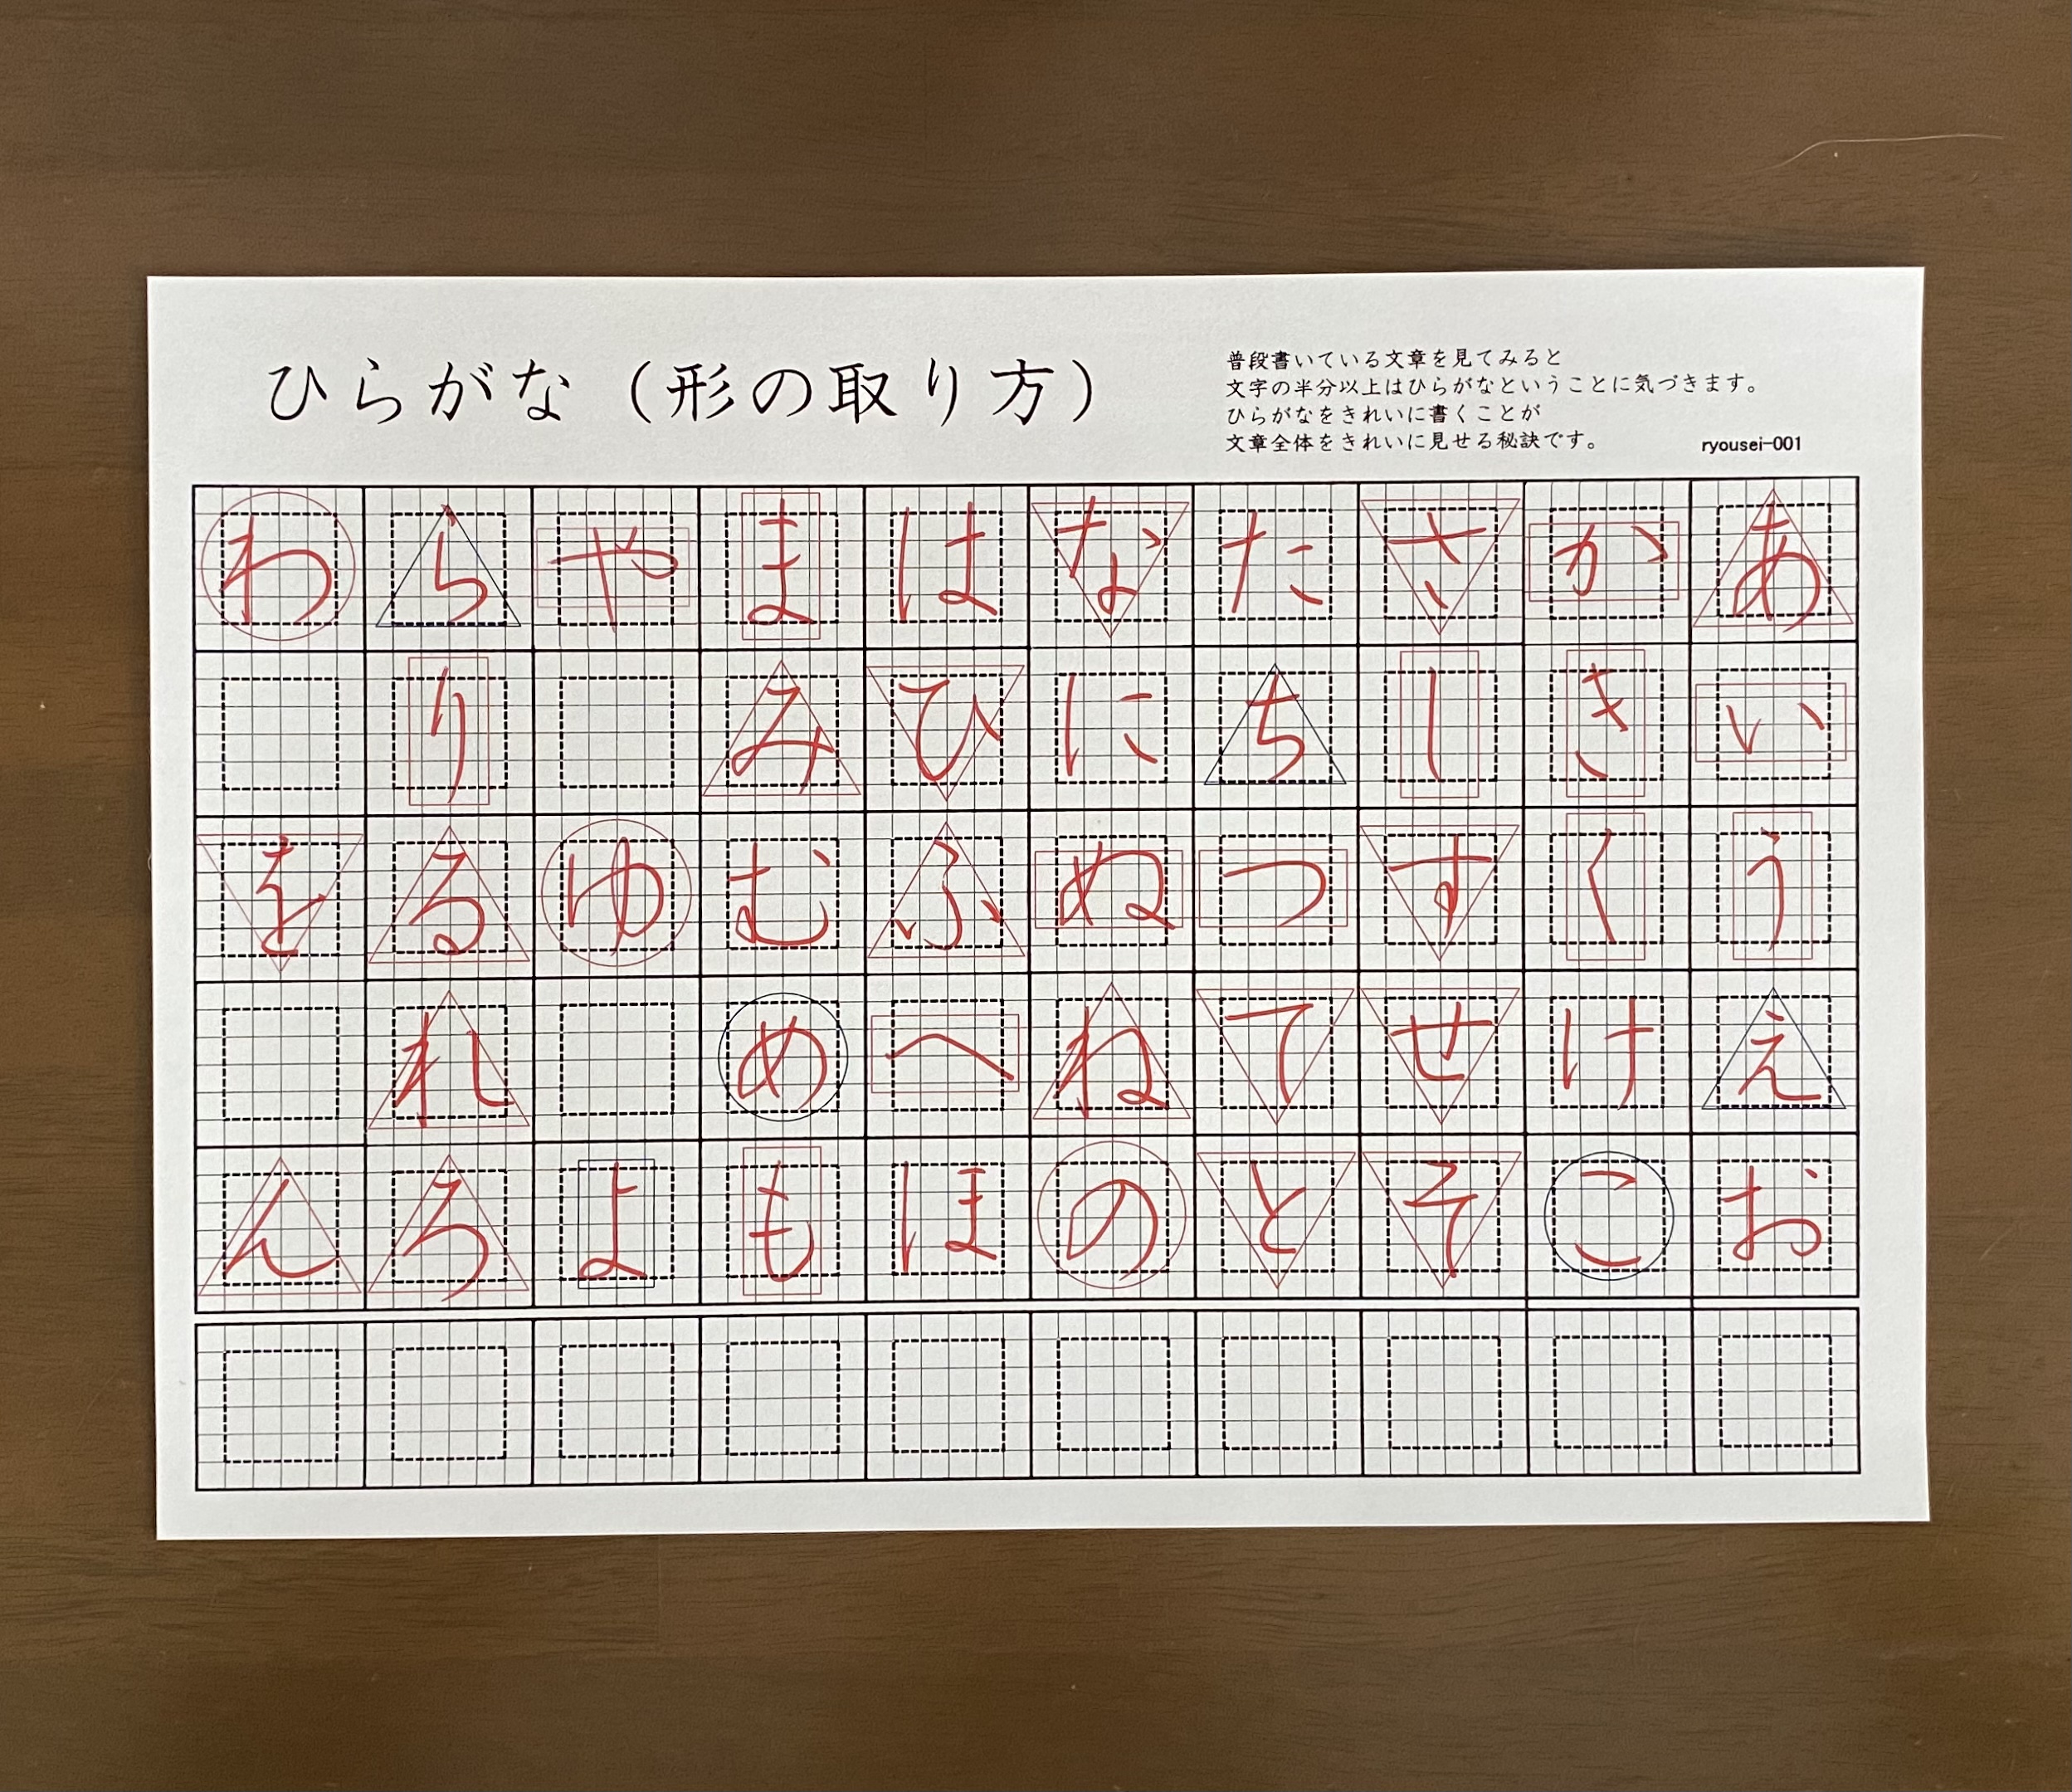 ひらがな（形の取り方）
普段書いている文章を見てみると
文字の半分以上はひらがなということに気づきます。
ひらがなをきれいに書くことが
文章全体をきれいに見せる秘訣です。
ryousei-001
あいうえお
かきくけこ
さしすせそ
たちつてと
なにぬねの
はひふへほ
まみむめも
やゆよ
らりるれろ
わをん